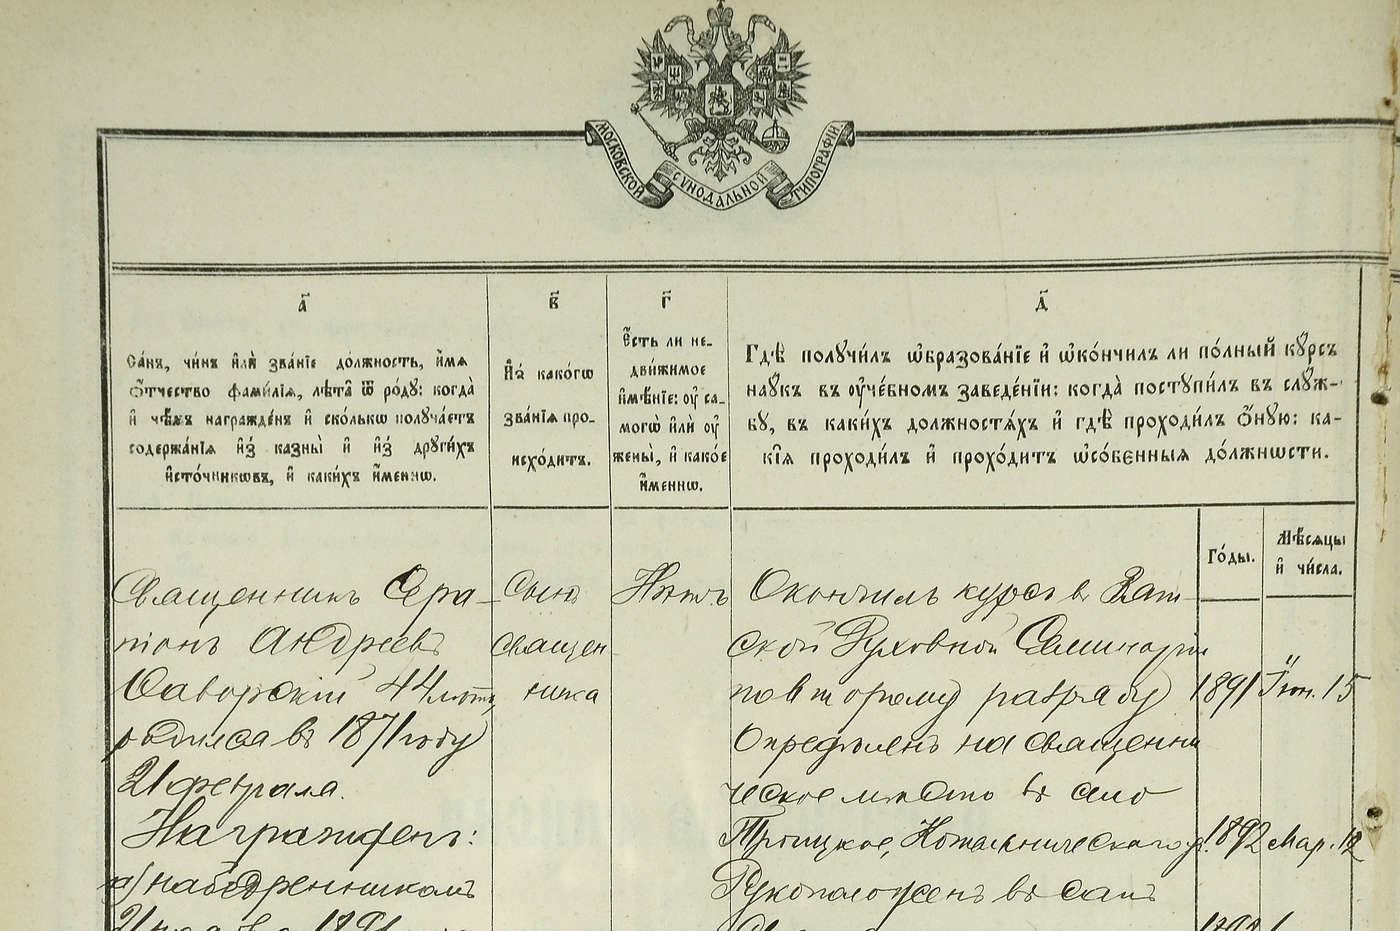 МОСКОВСКОЙ СѴНОДАЛЬНОЙ ТИПОГРАФІИ
а҃
Са́нъ, чи́нъ и҆лѝ зва́нїе до́лжность, и҆́мѧ
ѻ҆́тчество фами́лїѧ, лѣ́та ѿ ро́дꙋ: когда̀
и҆ чѣ́мъ награжде́нъ и҆ ско́лькѡ полꙋча́етъ
содержа́нїѧ и҆з̾ казны̀ и҆ и҆з̾ дрꙋги́хъ
и҆сто́чникѡвъ, и҆ каки́хъ и҆́меннѡ.
в҃
И҆з̾ како́гѡ
зва́нїѧ про-
исхо́дитъ.
г҃
Є҆́сть ли не-
дви́жимое
и҆мѣ́нїе: ᲂу҆ са-
могѡ̀ и҆лѝ ᲂу҆
жены̀, и҆ како́е
и҆́меннѡ.
д҃
Гдѣ̀ полꙋчи́лъ ѡ҆бразова́нїе и҆ ѡ҆ко́нчилъ ли по́лный кꙋ́рсъ
наꙋ́къ въ ᲂу҆че́бномъ заведе́нїи: когда̀ постꙋпи́лъ въ слꙋ́ж-
бꙋ, въ каки́хъ должностѧ́хъ и҆ гдѣ̀ проходи́лъ ѻ҆́нꙋю: ка-
кі́ѧ проходи́лъ и҆ прохо́дитъ ѡ҆со́бенныѧ до́лжнѡсти.
Го́ды.
Мѣ́сѧцы
и҆ чи́сла.
Священникъ Сера-
піонъ Андреевъ
Фаворскій 44 лѣтъ
родился въ 1871 году
21 февраля.
Награжденъ:
а) набедренникомъ
Сынъ
священ-
ника
Нѣтъ
Окончилъ курсъ въ Вят-
ской Духовной Семинаріи
по второму разряду 1891 Іюн. 15
Опредѣленъ на священни
ческое мѣсто въ село
Троицкое, Котельническаго у. 1892 Мар. 12
Рукоположенъ въ санъ